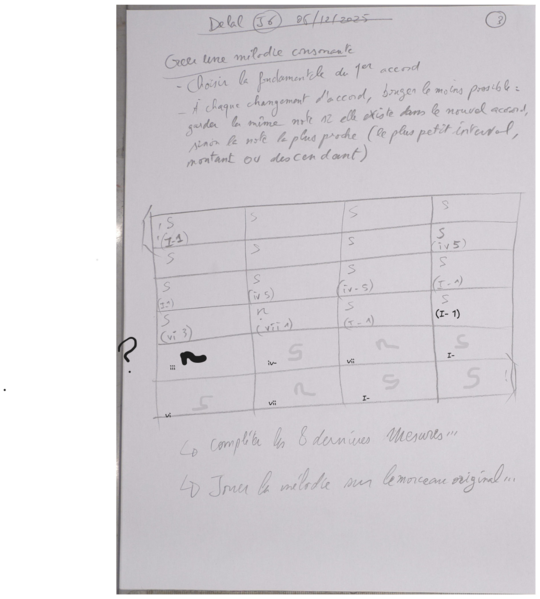 Delal (J6) 05/12/2025 (2)
Créer une mélodie consonante
- Choisir la fondamentale du 1er accord
- A chaque changement d'accord, bouger le moins possible :
garder la même note si elle existe dans le nouvel accord,
sinon la note la plus proche (le plus petit interval,
montant ou descendant)
S S S S
(I-1)
S S S S
(iv5)
S S S S
(I-1) (iv5) (iv-5) (I-1)
S R S S
(vi 3) (I-1) (I-1)
? iii R iv- S vii R I- S
vi S vii R I- S S
↳ complète les 8 dernières mesures...
↳ Jouer la mélodie sur le morceau original...